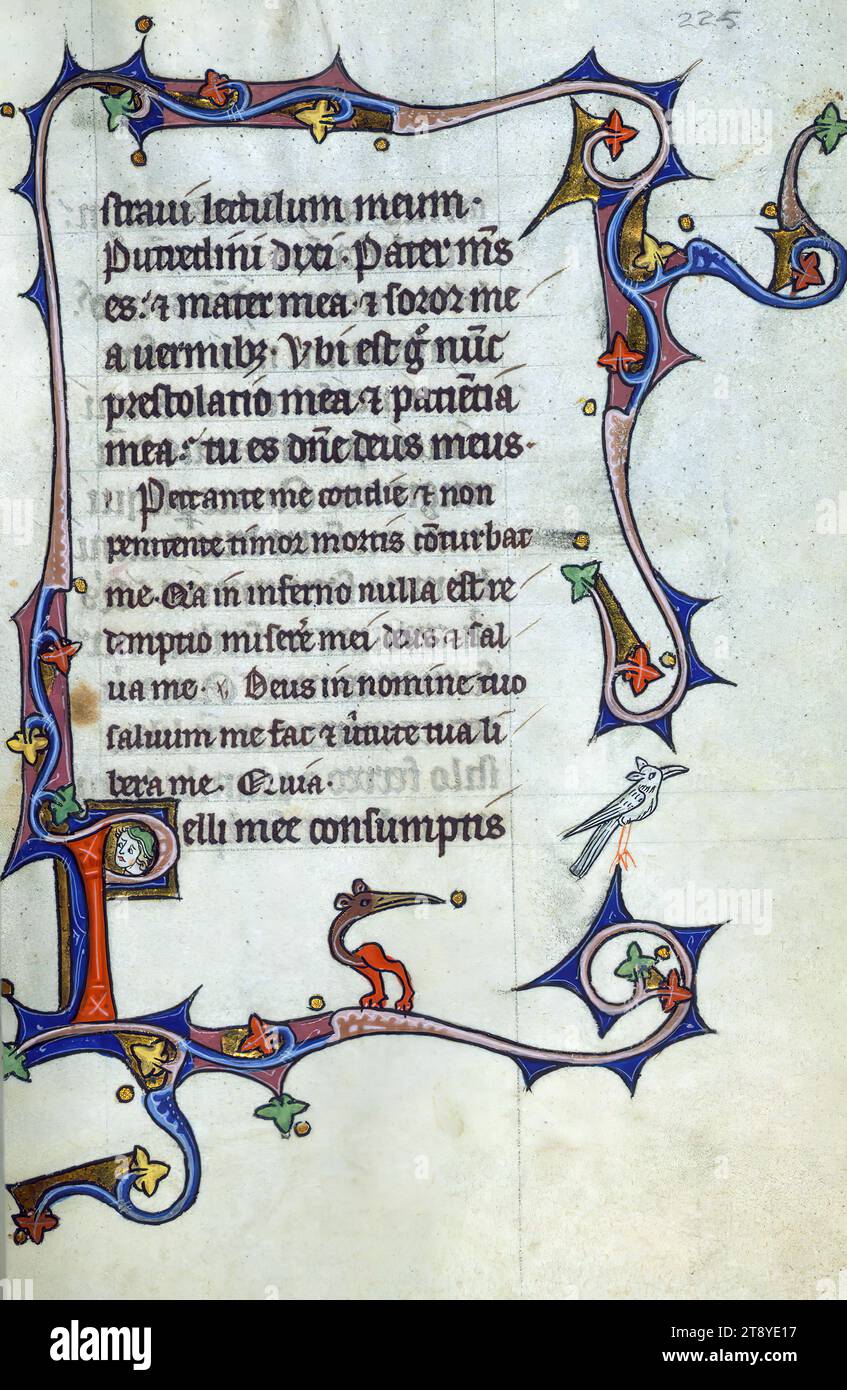 225
straui lectulum meum.
Putredini dixi. Pater m̅s
es: ⁊ mater mea ⁊ soror me
a uermibꝫ. Vbi est gͦ nu̅c
prestolatio mea ⁊ pacie̅tia
mea: tu es dn̅e deus meus.
Peccante me cotidie ⁊ non
penitente timor mortis co̅turbat
me. Q'a in inferno nulla est re
demptio misere̅ mei deus ⁊ sal
ua me. v̕ Deus in nomine tuo
saluum me fac ⁊ u̅tute tua li
bera me.
Pelli mee consumptis
alamy
alamy
alamy
Image ID: 2T8YE17
www.alamy.com